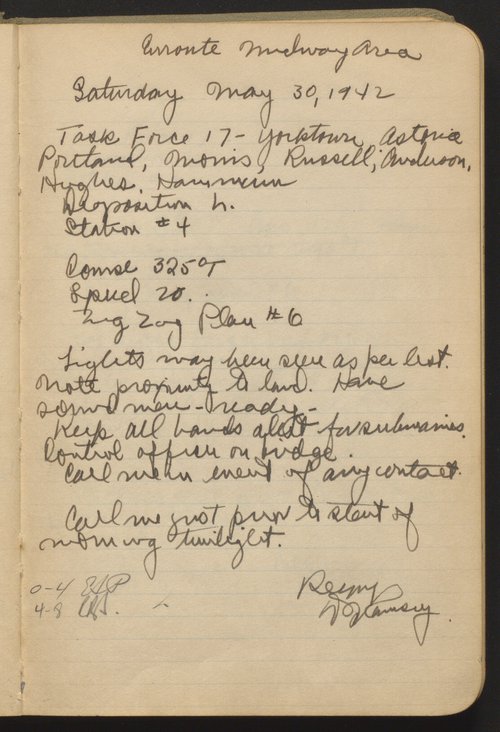 Enroute Midway Area
Saturday May 30, 1942
Task Force 17 - Yorktown, Astoria
Portland, Morris, Russell, Anderson,
Hughes, Hammann
Disposition L.
Station #4
Course 325°T
Speed 20.
Zig Zag Plan #6
Lights may been seen as per list.
Note proximity to land. Have
sound men ready -
Keep all hands alert for submarines.
Control officer on bridge.
Call me in event of any contact.
Call me just prior to start of
morning twilight.
0-4
4-8
D Ramsey